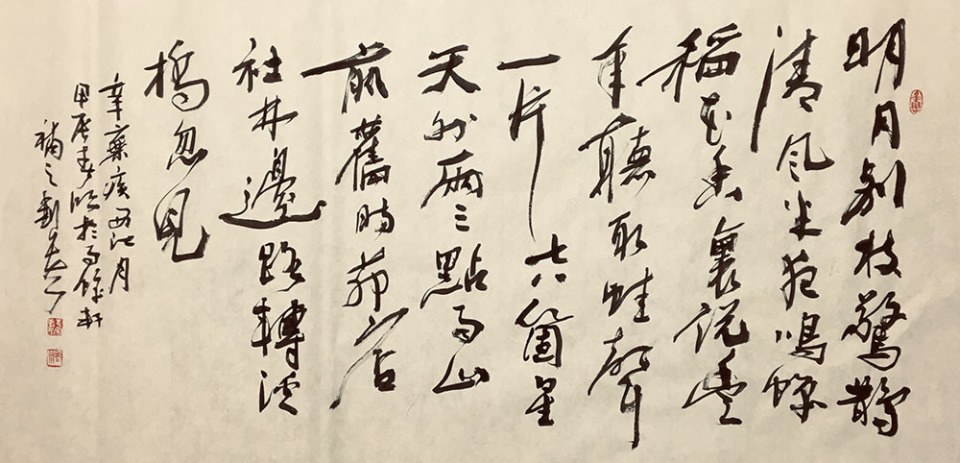 明月別枝驚鵲
清風半夜鳴蟬
稻花香裏說豐
年聽取蛙聲
一片七八箇星
天外兩三點雨山
前舊時茆店
社林邊路轉溪
橋忽見
辛棄疾西江月
甲辰春於雨餘軒
補之劉